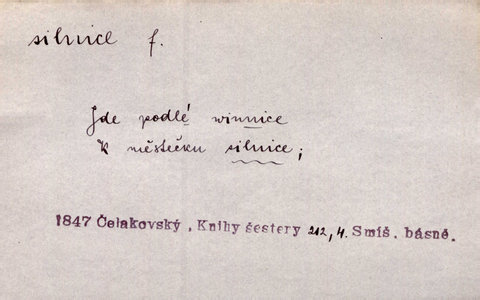 silnice f.
Jde podlé winnice
K městečku silnice;
1847 Čelakovský, Knihy šestery 212, 4. Smíš. básně.